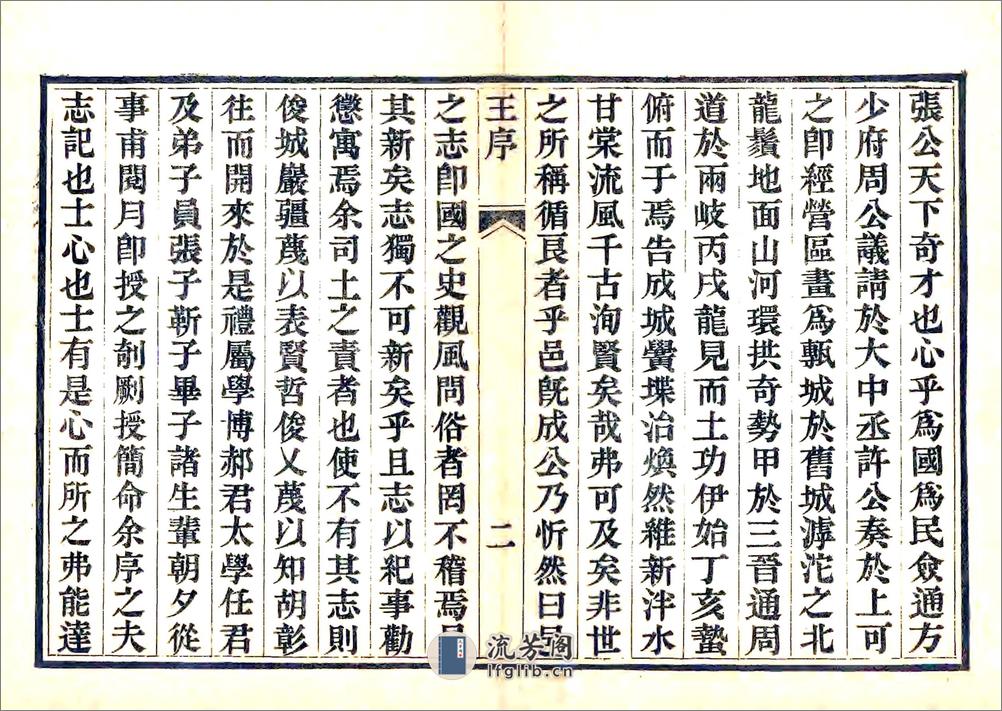 張公天下奇才也心乎爲國爲民僉通方
少府周公議請於大中丞許公奏於上可
之卽經營區畫爲甎城於舊城滹沱之北
龍鬚地面山河環拱奇勢甲於三晉通周
道於兩岐丙戌龍見而土功伊始丁亥蟄
俯而于焉告成城黌堞治煥然維新泮水
甘棠流風千古洵賢矣哉弗可及矣非世
之所稱循良者乎邑旣成公乃忻然曰
王序
二
之志卽國之史觀風問俗者罔不稽焉
其新矣志獨不可新矣乎且志以紀事勸
懲寓焉余司土之責者也使不有其志則
俊城巖疆蔑以表賢哲俊乂蔑以知胡彰
往而開來於是禮屬學博郝君太學任君
及弟子員張子靳子畢子諸生輩朝夕從
事甫閱月卽授之剞劂授簡命余序之夫
志記也士心也士有是心而所之弗能達
流芳閣
lfglib.cn